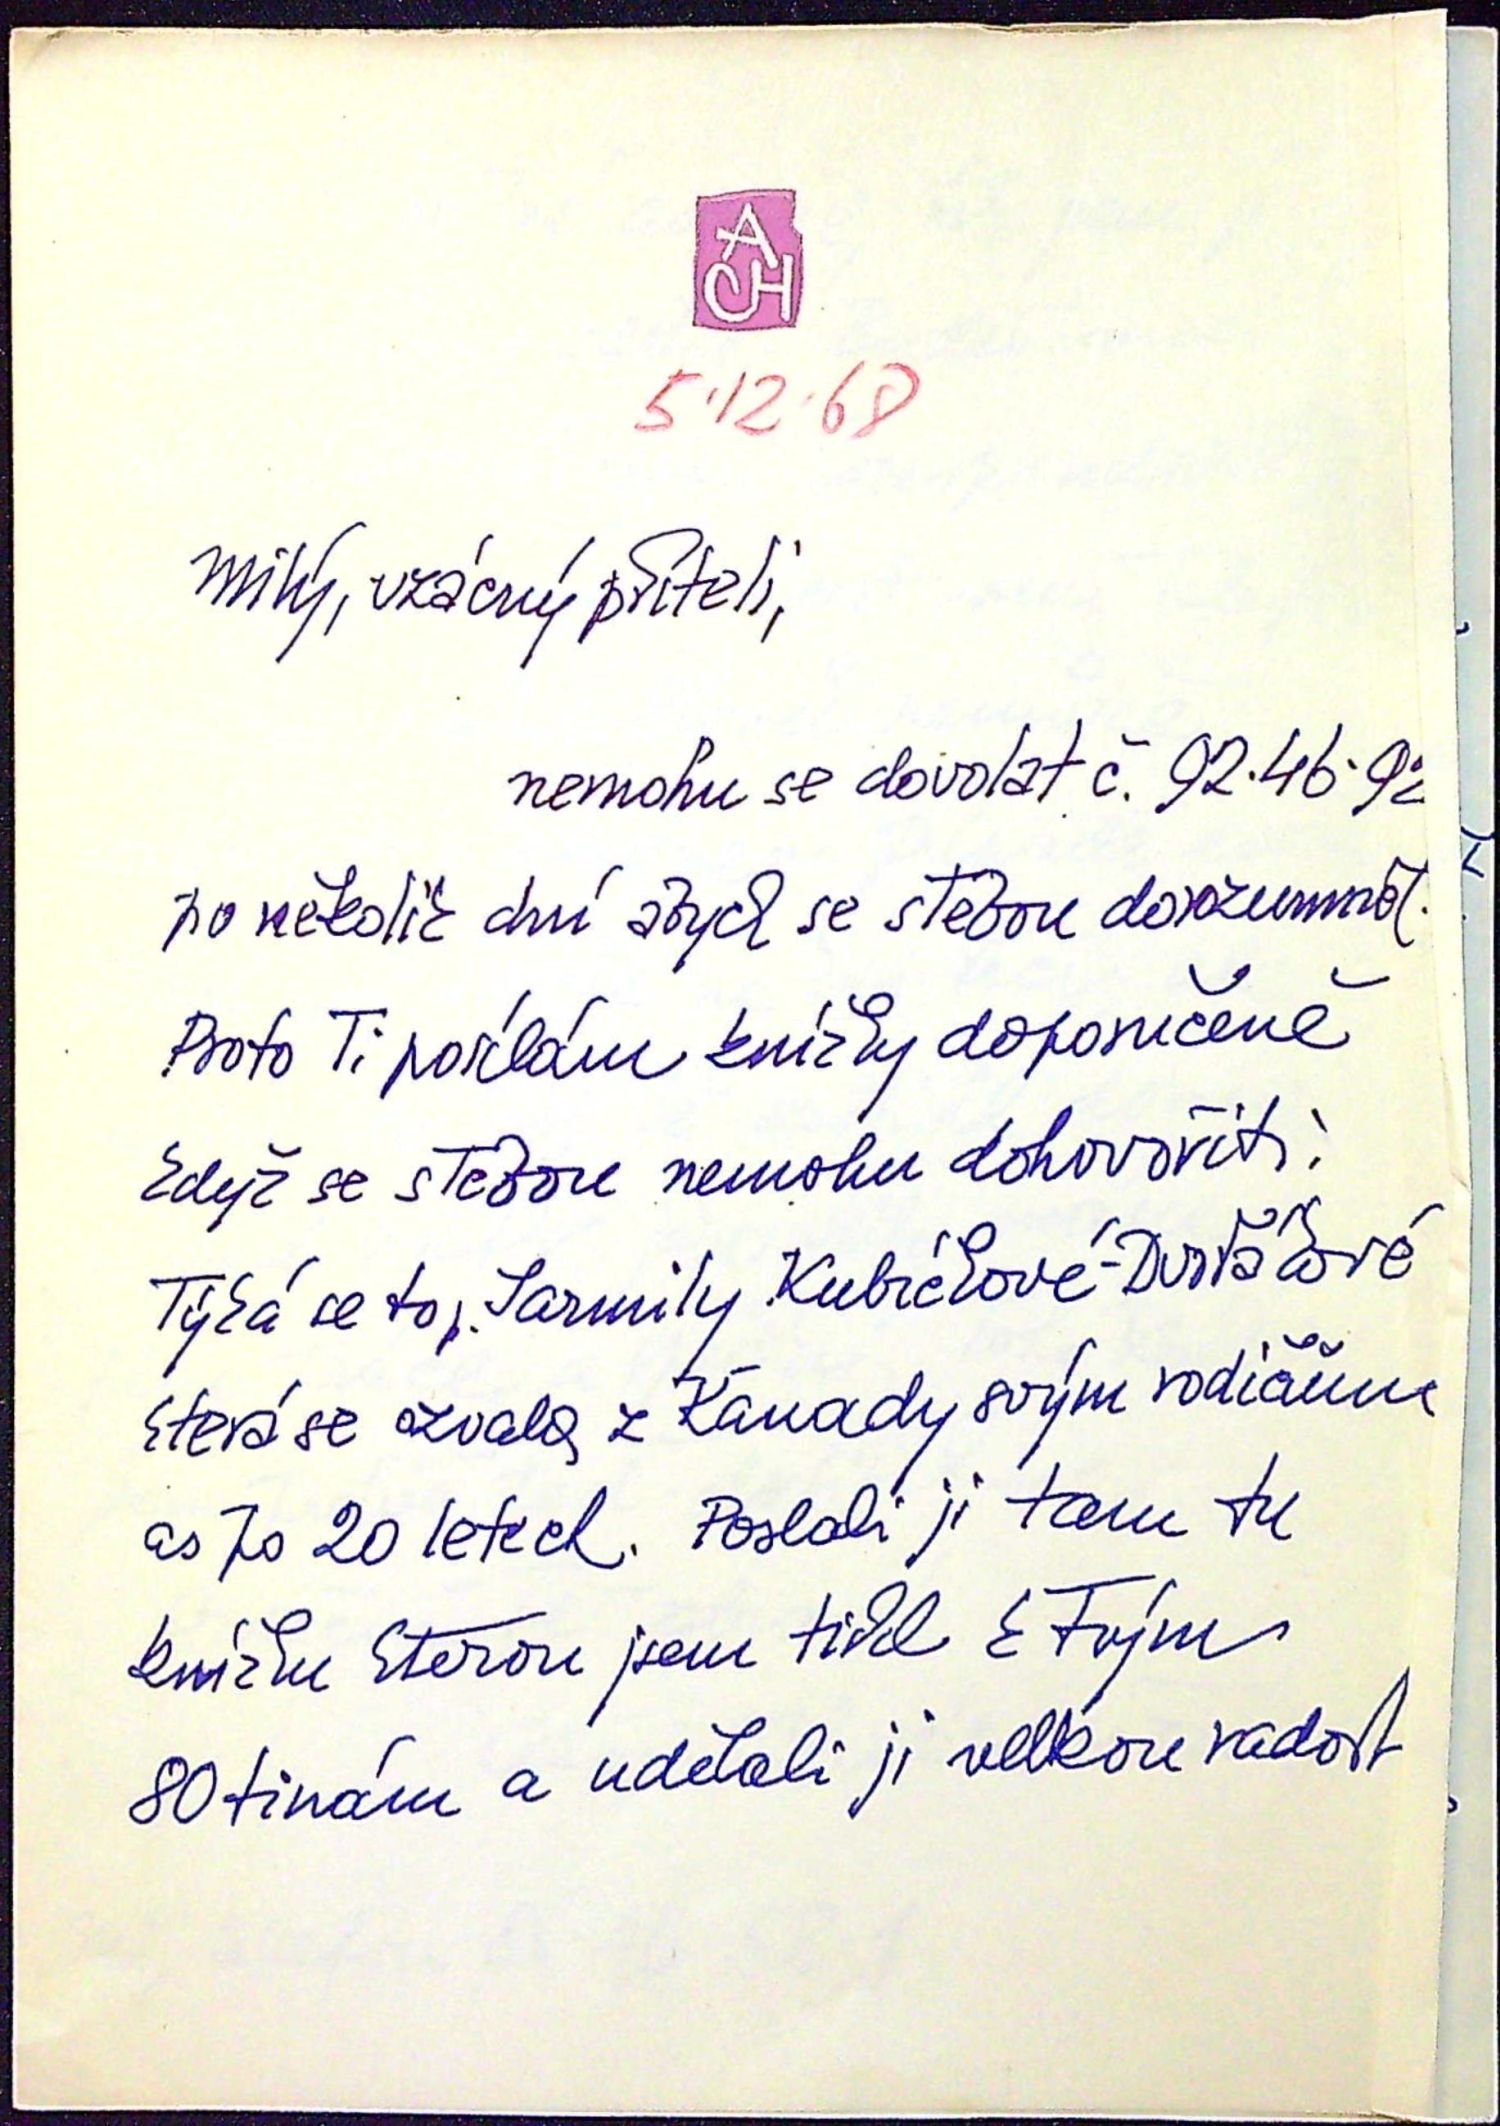 A
CH
5.12.68
Milý, vzácný příteli,
nemohu se dovolat č. 92.46.92
po několik dní abych se s Tebou dorozuměl.
Proto Ti posílám knížky doporučeně
když se s Tebou nemohu dohovořiti.
Týká se to p. Jarmily Kubíčkové-Dvořáčkové
která se ozvala z Kanady svým rodičům
as po 20 letech. Poslali ji tam tu
knížku kterou jsem tiskl k Tvým
80tinám a udělali ji velkou radost